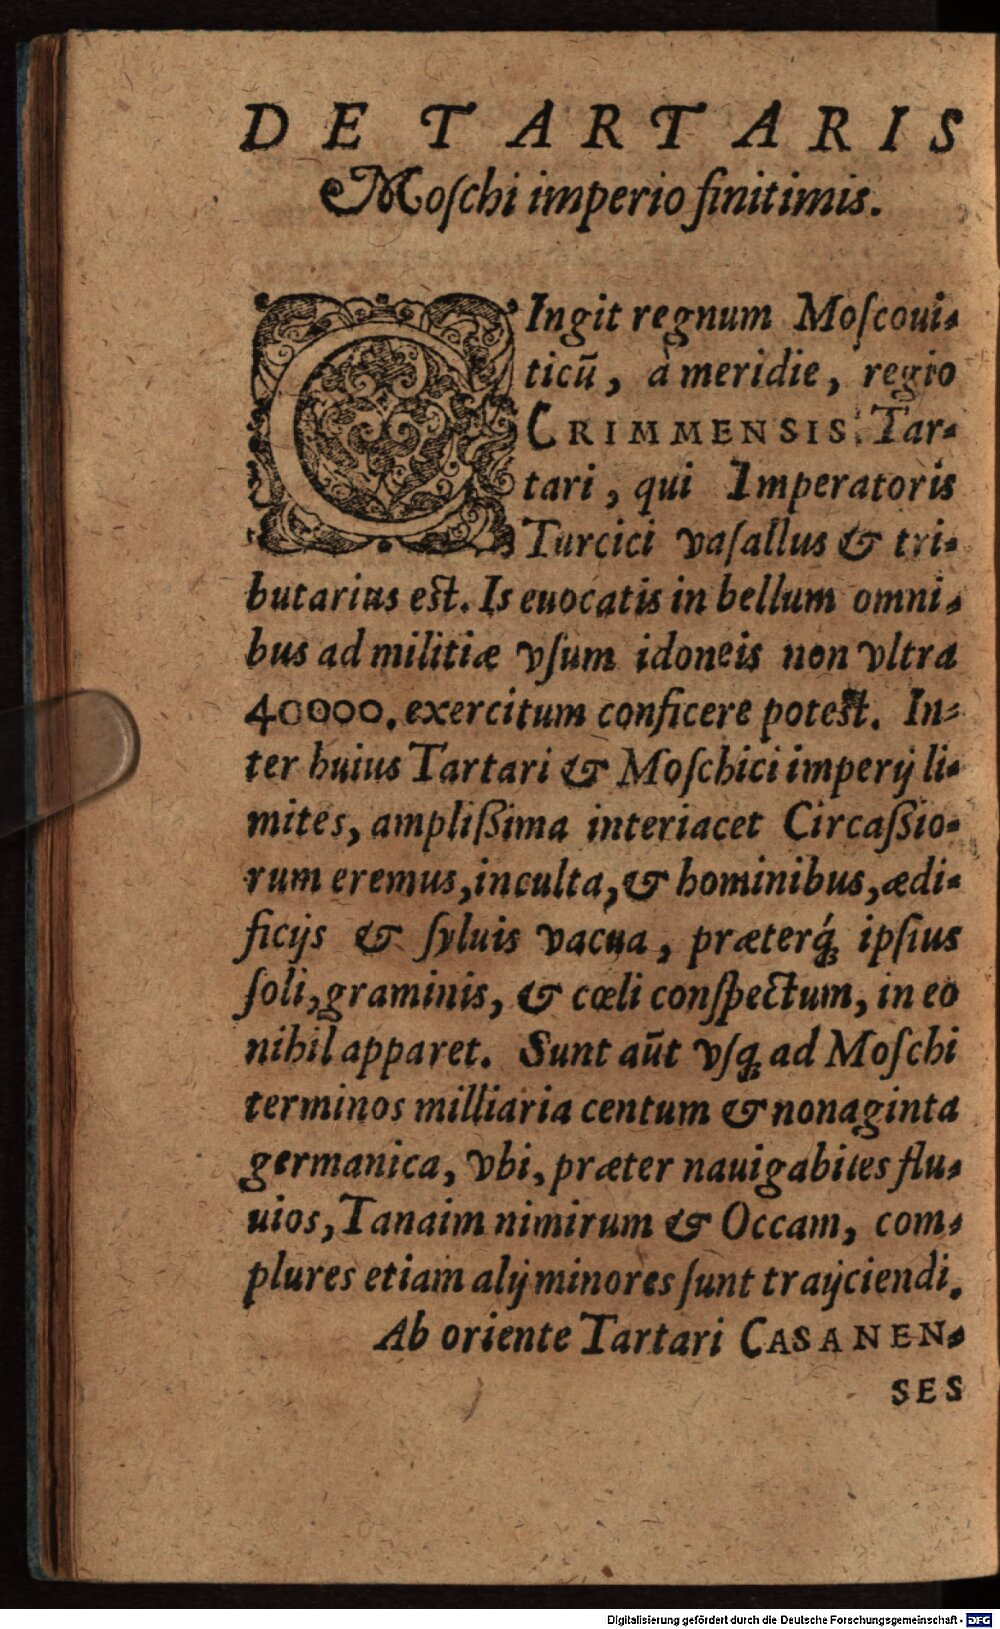 DE TARTARIS
Moſchi imperio finitimis.
CIngit regnum Moſcoui-
ticū, à meridie, regio
CRIMMENSIS Tar-
tari, qui Imperatoris
Turcici vaſallus & tri-
butarius eſt. Is euocatis in bellum omni-
bus ad militiæ vſum idoneis non vltra
40000. exercitum conficere poteſt. In-
ter huius Tartari & Moſchici imperij li-
mites, ampliſsima interiacet Circaſsio-
rum eremus, inculta, & hominibus, ædi-
ficijs & ſyluis vacua, præterq́; ipſius
ſoli, graminis, & cœli conſpectum, in eo
nihil apparet. Sunt aūt vſq; ad Moſchi
terminos milliaria centum & nonaginta
germanica, vbi, præter nauigabiles flu-
uios, Tanaim nimirum & Occam, com-
plures etiam alij minores ſunt traijciendi.
Ab oriente Tartari CASANEN-
SES
Digitalisierung gefördert durch die Deutsche Forschungsgemeinschaft - DFG